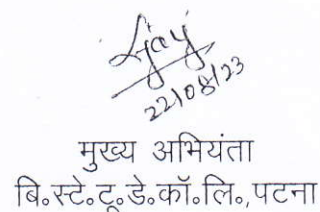 22/08/23
मुख्य अभियंता
बि॰स्टे॰टू॰डे॰कॉ॰लि॰,पटना